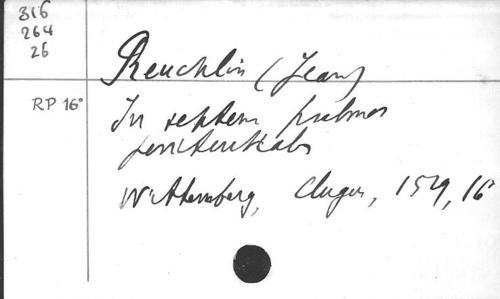 816
264
26
Reuchlin (Jean)
RP 16°
In septem psalmos
penitentiales
Wittemberg, 1529, 16°